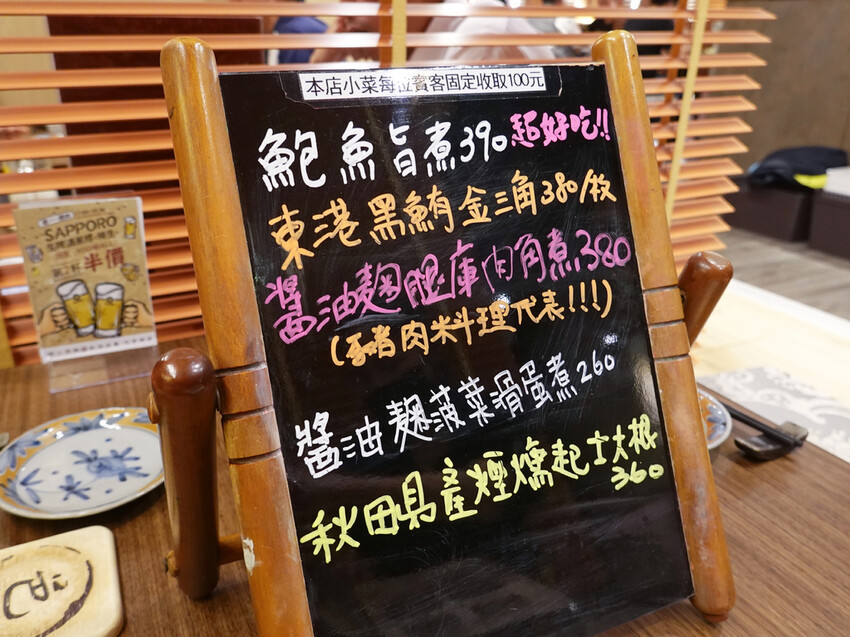 本店小菜每位賓客固定收取100元
鮑魚旨煮390 超好吃!!
東港黑鮪金三角380/枚
醬油麴腿庫肉角煮380
(豬肉料理代表!!!)
醬油麴菠菜滑蛋煮260
秋田県產煙燻起士大根
360
SAPPORO
半價